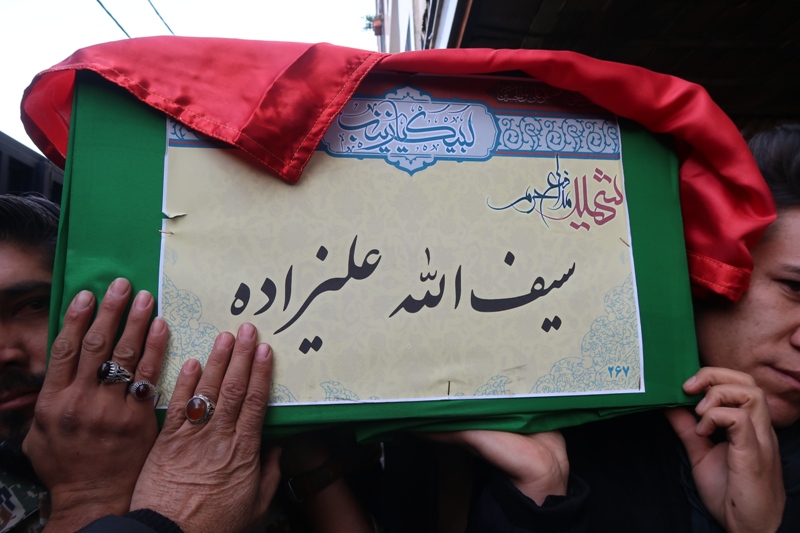 لبیک یا زینب
شهید مدافع حرم
سیف الله علیزاده
۲۶۷